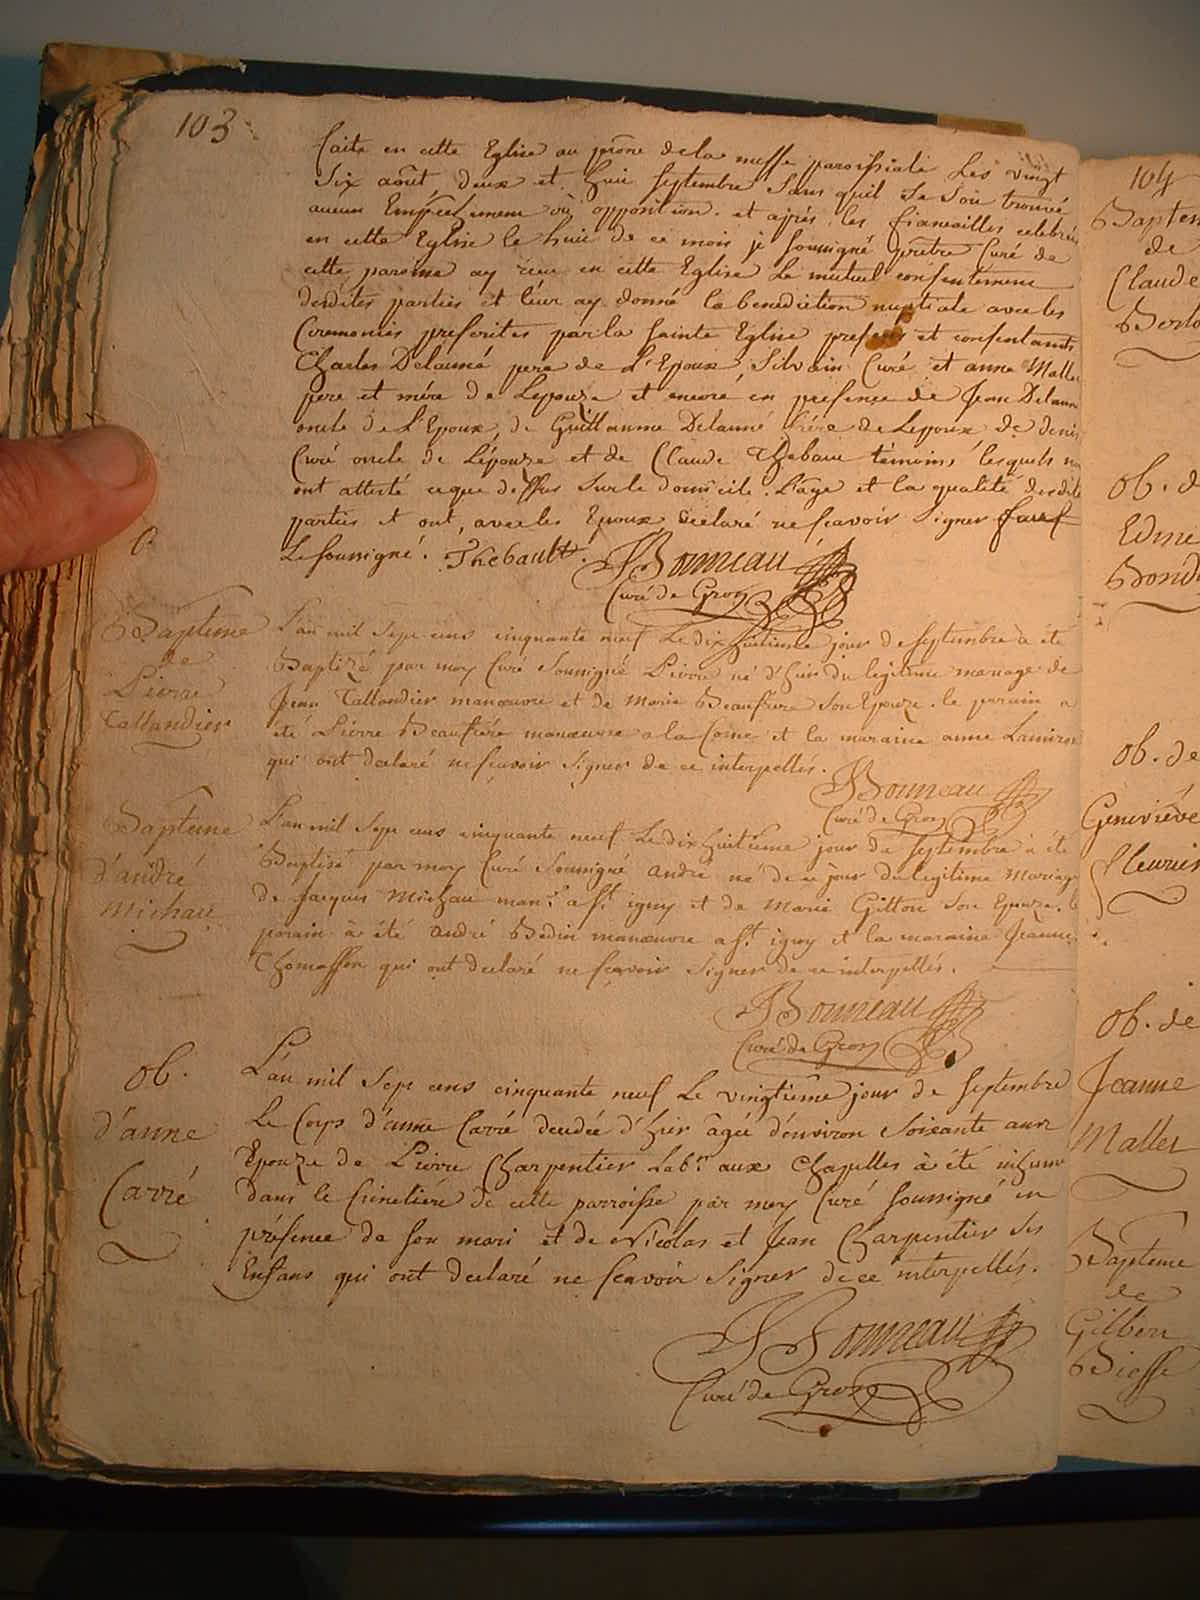 103
faite en cette Eglise au prône de la messe paroissiale les vingt
Six août deux et huit septembre sans quil se soit trouvé
aucun Empêchement où opposition. et aprés les fiancailles celebrées
en cette Eglise le huit de ce mois je soussigné prêtre Curé de
cette paroisse ay recu en cette Eglise le mutuel consentement
desdites parties et leur ay donné la benediction nuptiale avec les
Ceremonies prescrites par la sainte Eglise presens et consentants
Charles Delauné pere de L'Epoux, Silvain Curé et anne Mallet
pere et mére de Lepouze et encore en presence de Jean Delaune
oncle de L'Epoux, de Guillaume Delauné frére de Lepoux de denis
Curé oncle de Lépouze et de Claude Thebaut témoins lesquels n
ont attesté ceque dessus sur le domicile. L'age et la qualité desdites
parties et ont, avec les Epoux declaré ne scavoir signer sauf
Le soussigné. Thebault. Bonneau
Curé de Gron
Baptême
de
Pierre
Tallandier
L'an mil sept cens cinquante neuf Le dix huitieme jour de septembre à été
Baptizé par moy Curé Soussigné Pierre né d'hier du legitime mariage de
Jean Tallandier manœuvre et de Marie Beaufrere son Epouze. le parain a
été Pierre Beaufrére manœuvre a la Corne et la maraine anne Lamirau
qui ont declaré ne scavoir signer de ce interpellés.
Bonneau
Curé de Gron
Baptême
d'andré
Michau
L'an mil sept cens cinquante neuf Le dix huitieme jour de septembre à été
Baptisé par moy Curé Soussigné andré né de ce jour du legitime mariage
de Jacques Michau man. a st. igny et de Marie Gitton son Epouze. le
parain à été andré Bedin manœuvre a st. igny et la maraine Jeanne
Thomasson qui ont declaré ne scavoir signer de ce interpellés.
Bonneau
Curé de Gron
ob.
d'anne
Carré
L'an mil sept cens cinquante neuf Le vingtiême jour de septembre
Le Corps d'anne Carré decedée d'hier âgée d'environ soixante ans
Epouze de Pierre Charpentier Labr. aux Chapelles à été inhumé
dans le Cimetiére de cette parroisse par moy Curé soussigné en
présence de son mari et de Nicolas et Jean Charpentier ses
Enfans qui ont declaré ne scavoir signer de ce interpellés.
Bonneau
Curé de Gron
104
Baptem
de
Claude
ob. d
Edme
ob. de
Geneviéve
fleurier
ob. de
Jeanne
Mallet
Baptême
de
Gilbert
Biesse